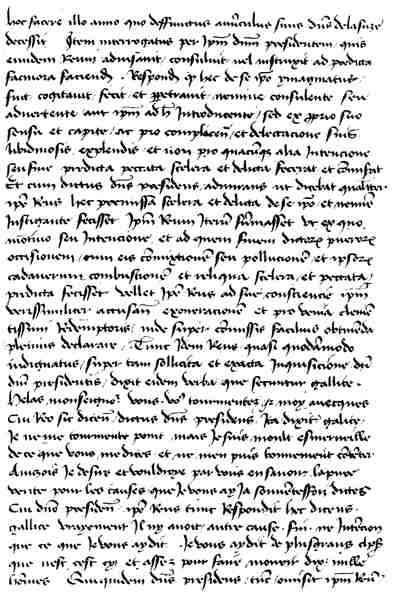 hoc facere illo anno quo deffunctus avunculus suus dns de lasuze
decessit Item interrogatus per ipm dnm presidentem quis
eundem Reum advisavit consuluit vel instruxit ad predicta
facinora faciendi. Respondit qz hec de se ipo ymaginatus
fuit cogitavit fecit et ppetravit nemine consulente seu
advertente aut ipm ad h introducente, sed ex pprio suo
sensu et capite, ac pro complacen et delectacione suis
libidinosis explendis et non pro quacumqz alia intencione
seu fine predicta peccata scelera et delicta fecerat et comiserat
Et cum dictus dns presidens admirans ut dicebat qualiter
ipe Reus hec premissa scelera et delicta de se ipo et nemine
instigante fecisset ipm Reum iterum summasset ut ex quo
motivo seu intencione et ad quem finem dictorz puerorz
occisionem / cum eis comixtionem seu pollucionem et ipsorz
cadaverum combustionem et reliqua scelera et peccata
predicta fecisset vellet ipe Reus ad sue consciencie ipm
verisimiliter accusan exoneracionem et pro venia clemen
tissimi Redemptoris / inde super comissis facilius obtinenda
plenius declarare. Tunc idem Reus quasi quodammodo
indignatus / super tam sollicita et exacta inquisicione dicti
dni presidentis, dixit eidem verba que secuntur gallice.
Helas monseigneur vous vous tourmentez et moy avecques
Cui Reo sic dicen dictus dns presidens Ita dixit gallice
Je ne me tourmente point mais Je suis moult esmerveille
de ce que vous me dites et ne men puis bonnement contenter
Ainczois Je desire et vouldroye par vous en savoir la pure
verite pour les causes que Je vous ay Ja souventesffoiz dictes
Cui dno presiden ipe Reus tunc Respondit hec dicens
gallice Vrayement Il ny avoit autre cause fin ne Intencion
que ce que Je vous ay dit. Je vous ay dit de plus grans choses
que nest cest cy et assez pour faire mourir dix mille
hommes Quiquidem dns presidens tunc omisit ipm Reum